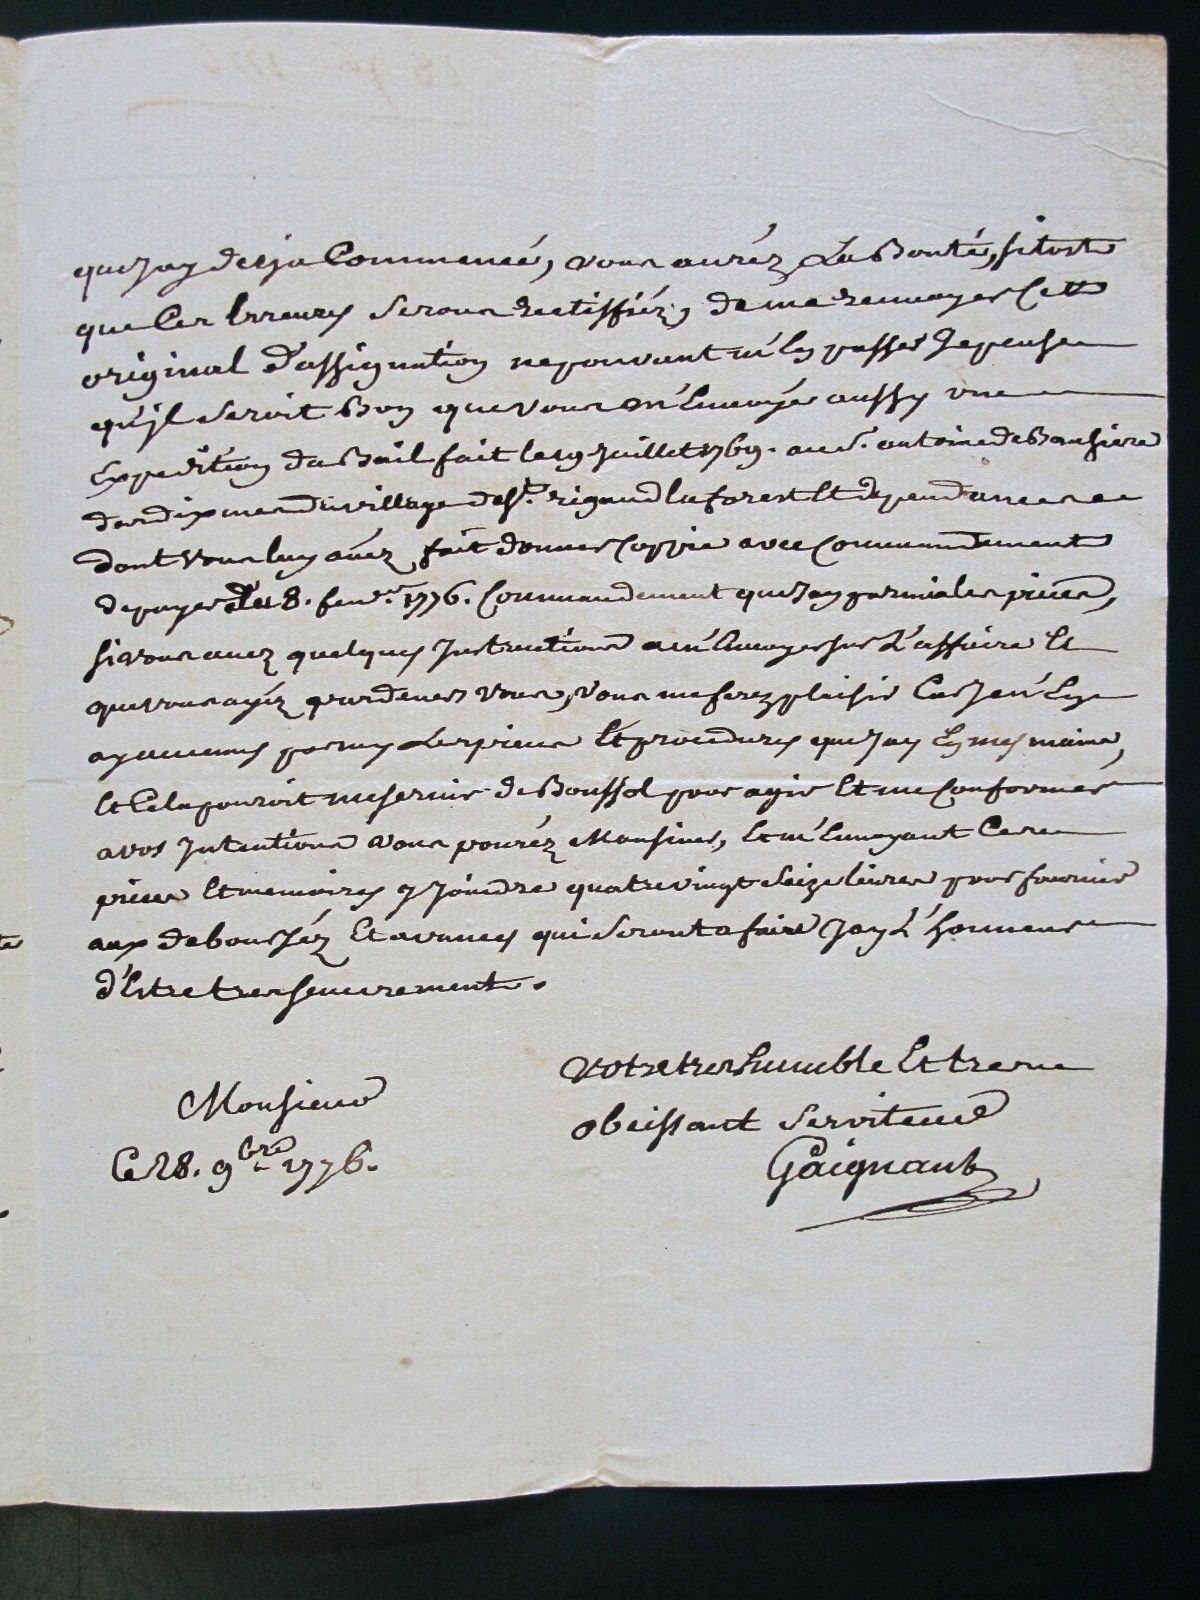 que Jay desja Commencé, vous auréz La Bonté, sitost
que Ces Erreures Serons rectiffiéz, de me renvoyer Cett
original d'assignation ne pouvant m'En passer Je pense
qu'jl Seroit Bon que vous m'Envoyés aussy une
Expedition du Bail fait le 19 Juillet 1769. au Sr. antoine de
des dixmes du village de St. rigaud la forest Et dependances
dont vous luy avéz fait donner Coppie avec Commandement
de payer Le 8. fevrier. 1776. Commandement que Jay parmi les pieces,
si vous avez quelques Instructions a m'Envoyer sur L'affaire Et
que vous ayéz pardevers vous, vous me ferez plaisir Car Je n'En
ay aucunes parmy Les pieces Et procedures que Jay En mes mains,
Et Cela pouroit me servir de Boussol pour agir Et me Conformer
a vos Intentions vous pouréz Monsieur, Et m'Envoyant Ces
pieces Et memoires y Joindre quatre vingt Seize livres pour fournir
aux debourséz Et avances qui Seront a faire Jay L'honneur
d'Estre tres sincerement.
votre tres humble Et tres
obeissant Serviteur
Monsieur
Gaignault
Ce 28. 9bre 1776.